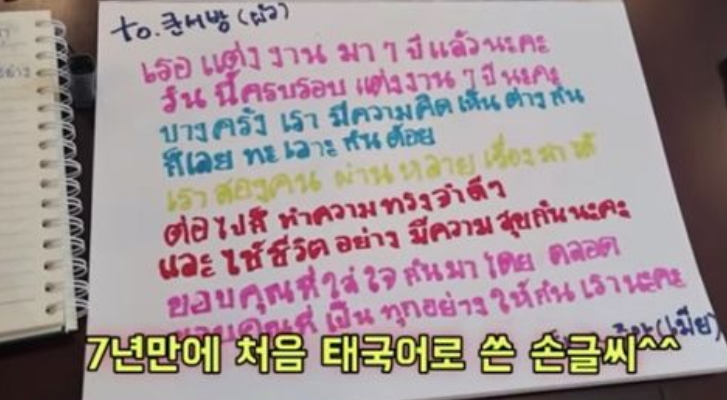 to. 큰서방 (ผัว)
เรอ แต่งงาน มา 7 ปี แล้วนะคะ
วัน นี้ครบรอบ แต่งงาน 7 ปี นะคะ
บางครั้ง เรา มีความคิด เห็น ต่าง กัน
ก็เลย ทะเลาะ กัน ด้อย
เรา สองคน ผ่าน หลาย เรื่อง มาได้
ต่อไปนี้ ทำความทรงจำดีๆ
และ ใช้ชีวิต อย่าง มีความสุขกันนะคะ
ขอบคุณที่ใส่ใจ กันมา โดย ตลอด
ขอบคุณที่ เป็น ทุกอย่าง ให้กัน เรานะคะ
(เมีย)
7년만에 처음 태국어로 쓴 손글씨^^